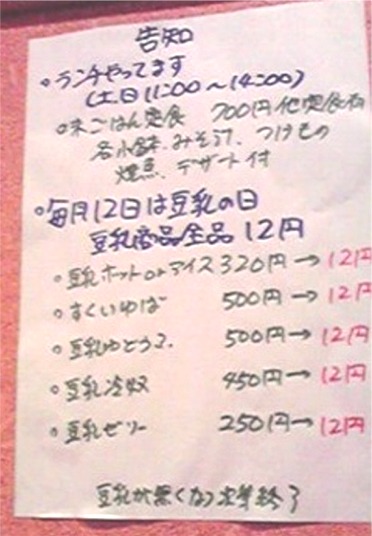 告知
○ランチやってます
(土日11:00〜14:00)
○味ごはん定食 700円他定食有
各小鉢、みそ汁、つけもの
焼魚、デザート付
○毎月12日は豆乳の日
豆乳商品全品 12円
○豆乳ホットorアイス 320円→12円
○すくいゆば 500円→12円
○豆乳ゆどうふ 500円→12円
○豆乳冷奴 450円→12円
○豆乳ゼリー 250円→12円
豆乳が無くなり次第終了